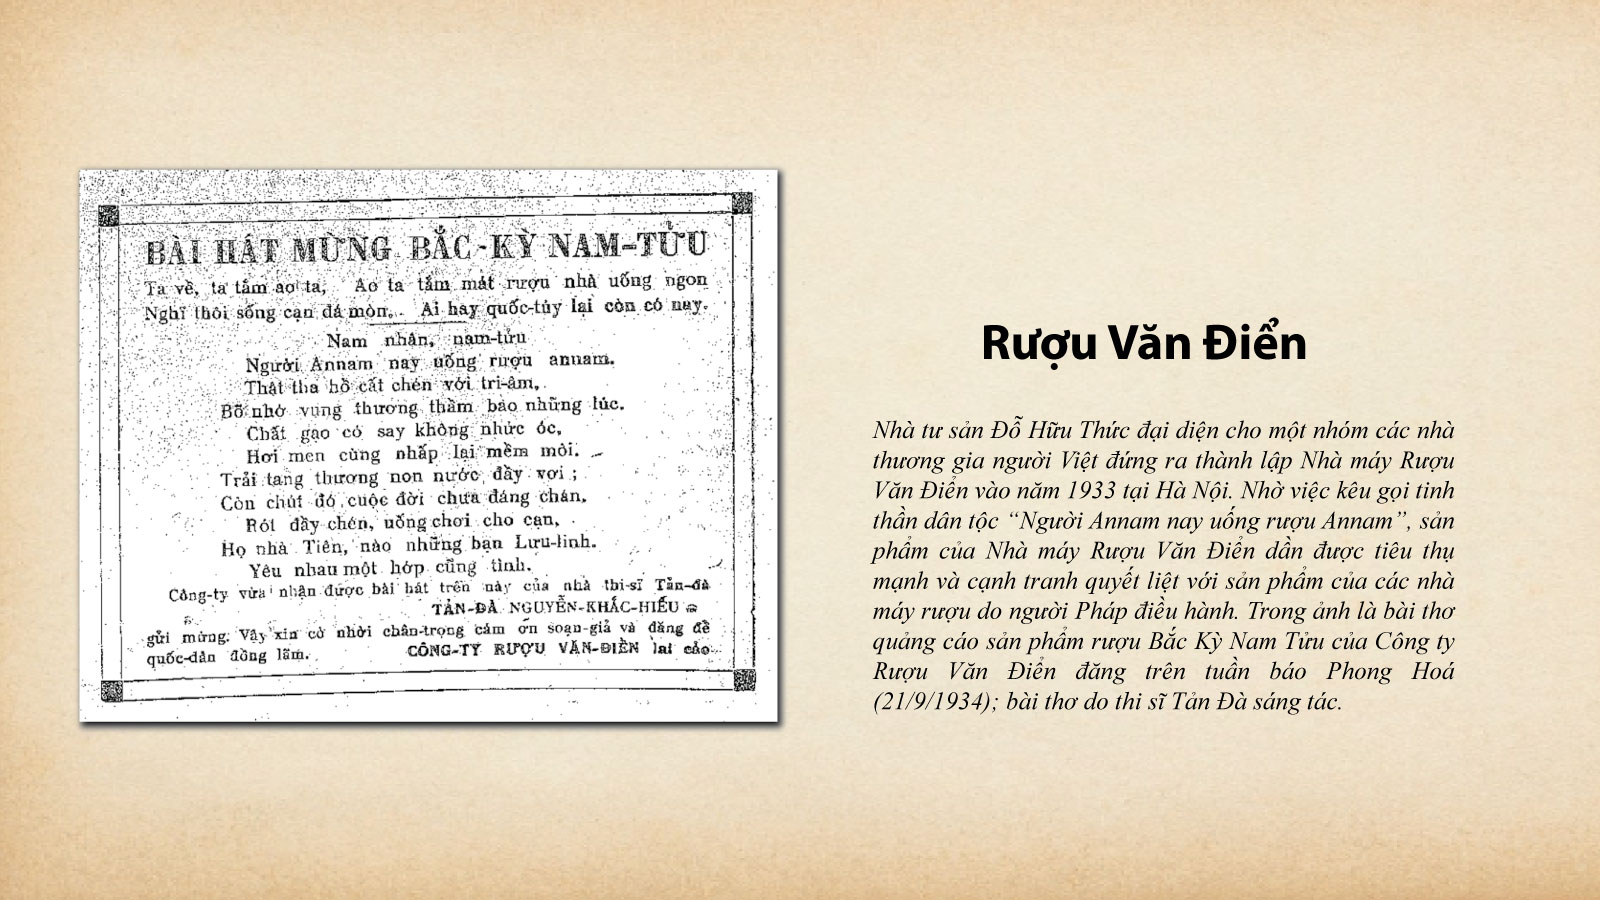 BÀI HÁT MỪNG BẮC-KỲ NAM-TỬU
Ta về, ta tắm ao ta, Ao ta tắm mát rượu nhà uống ngon
Nghĩ thôi sống cạn đá mòn. Ai hay quốc-túy lại còn có nay.
Nam nhân, nam-tửu
Người Annam nay uống rượu annam.
Thật tha hồ cất chén với tri-âm,
Bõ nhớ vụng thương thầm bao những lúc.
Chất gạo có say không nhức óc,
Hơi men cùng nhấp lại mềm môi.
Trải tang thương non nước đầy vơi ;
Còn chút đó cuộc đời chưa đáng chán.
Rót đầy chén, uống chơi cho cạn,
Họ nhà Tiên, nào những bạn Lưu-linh.
Yêu nhau một hớp cũng tình.
Công-ty vừa nhận được bài hát trên này của nhà thi-sĩ Tản-đà
TẢN-ĐÀ NGUYỄN-KHẮC-HIẾU
gửi mừng. Vậy xin có nhời chân-trọng cám ơn soạn-giả và đăng để
quốc-dân đồng lãm. CÔNG-TY RƯỢU VĂN-ĐIỂN lai cảo
Rượu Văn Điển
Nhà tư sản Đỗ Hữu Thức đại diện cho một nhóm các nhà
thương gia người Việt đứng ra thành lập Nhà máy Rượu
Văn Điển vào năm 1933 tại Hà Nội. Nhờ việc kêu gọi tinh
thần dân tộc “Người Annam nay uống rượu Annam”, sản
phẩm của Nhà máy Rượu Văn Điển dần được tiêu thụ
mạnh và cạnh tranh quyết liệt với sản phẩm của các nhà
máy rượu do người Pháp điều hành. Trong ảnh là bài thơ
quảng cáo sản phẩm rượu Bắc Kỳ Nam Tửu của Công ty
Rượu Văn Điển đăng trên tuần báo Phong Hoá
(21/9/1934); bài thơ do thi sĩ Tản Đà sáng tác.